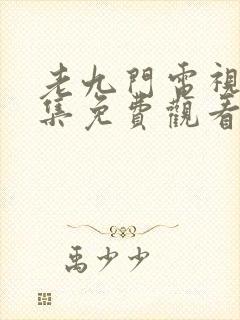 老九門電視
集免費觀看
禹少少